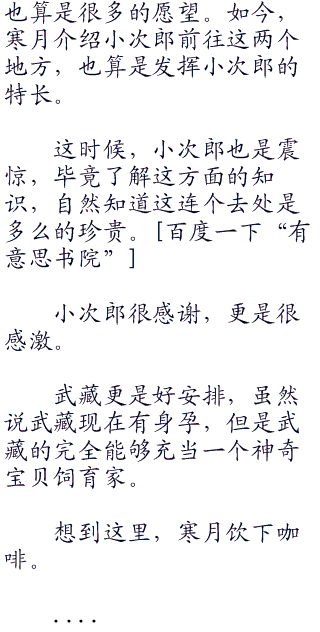 也算是很多的愿望。如今，
寒月介绍小次郎前往这两个
地方，也算是发挥小次郎的
特长。
这时候，小次郎也是震
惊，毕竟了解这方面的知
识，自然知道这连个去处是
多么的珍贵。[百度一下“有
意思书院”]
小次郎很感谢，更是很
感激。
武藏更是好安排，虽然
说武藏现在有身孕，但是武
藏的完全能够充当一个神奇
宝贝饲育家。
想到这里，寒月饮下咖
啡。
....